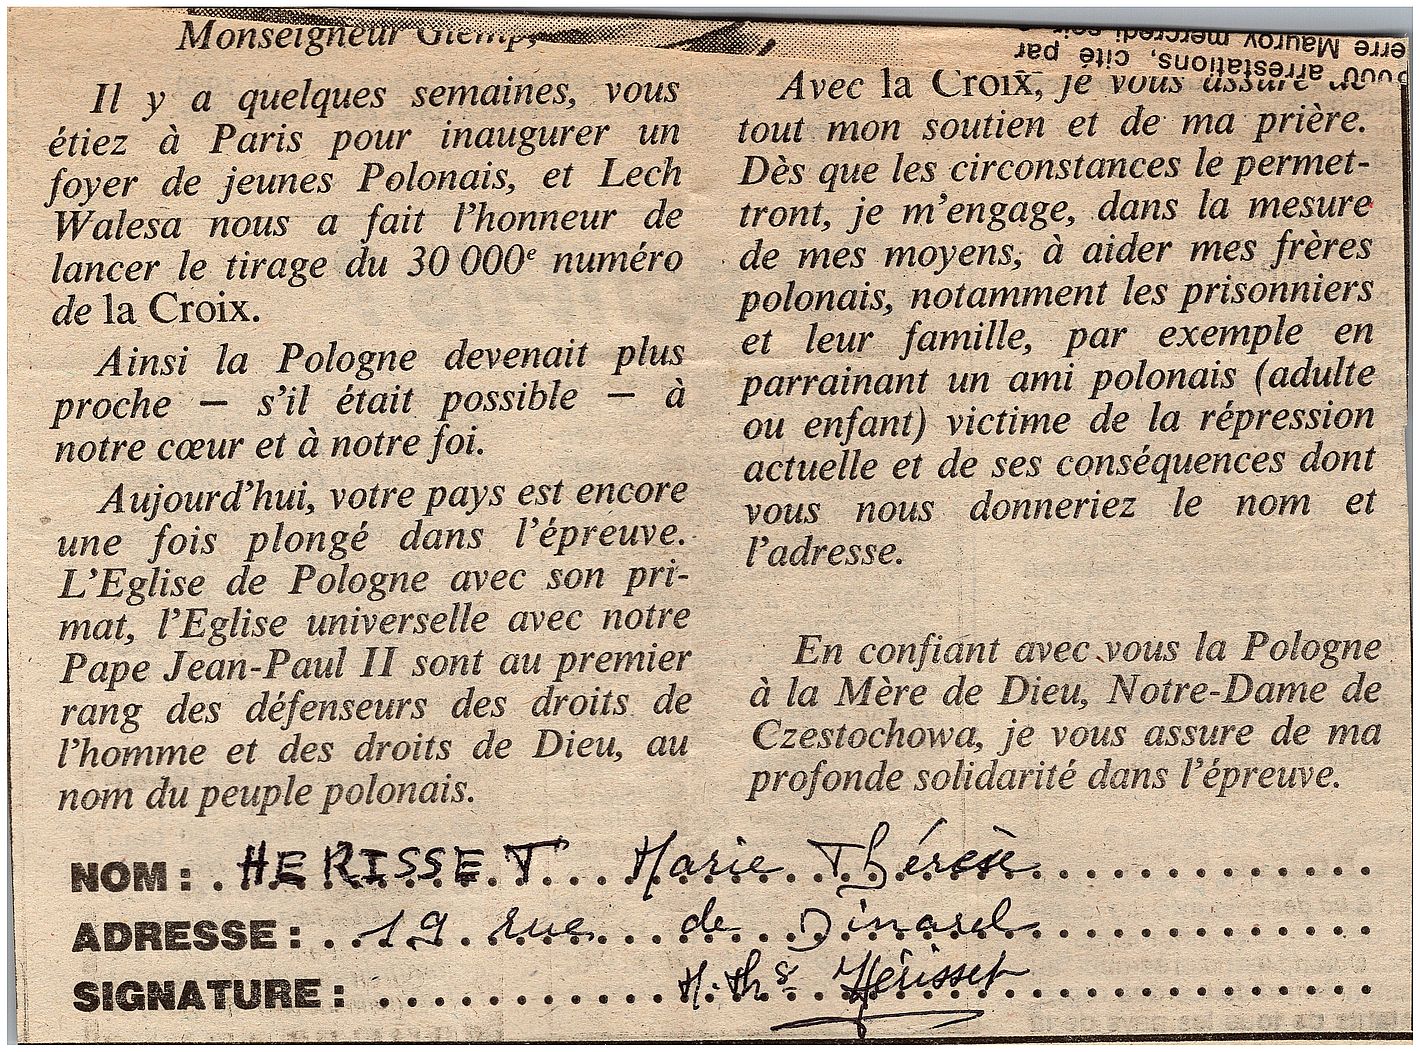 Monseigneur Glemp,
Il y a quelques semaines, vous
étiez à Paris pour inaugurer un
foyer de jeunes Polonais, et Lech
Walesa nous a fait l'honneur de
lancer le tirage du 30 000e numéro
de la Croix.
Ainsi la Pologne devenait plus
proche — s'il était possible — à
notre cœur et à notre foi.
Aujourd'hui, votre pays est encore
une fois plongé dans l'épreuve.
L'Eglise de Pologne avec son pri-
mat, l'Eglise universelle avec notre
Pape Jean-Paul II sont au premier
rang des défenseurs des droits de
l'homme et des droits de Dieu, au
nom du peuple polonais.
erre Mauroy mercredi soir
arrestations, cité par
Avec la Croix, je vous assure de
tout mon soutien et de ma prière.
Dès que les circonstances le permet-
tront, je m'engage, dans la mesure
de mes moyens, à aider mes frères
polonais, notamment les prisonniers
et leur famille, par exemple en
parrainant un ami polonais (adulte
ou enfant) victime de la répression
actuelle et de ses conséquences dont
vous nous donneriez le nom et
l'adresse.
En confiant avec vous la Pologne
à la Mère de Dieu, Notre-Dame de
Czestochowa, je vous assure de ma
profonde solidarité dans l'épreuve.
NOM : HERISSET Marie Thérèse
ADRESSE : 19 rue de Dinard
SIGNATURE : M. Ths Hérisset